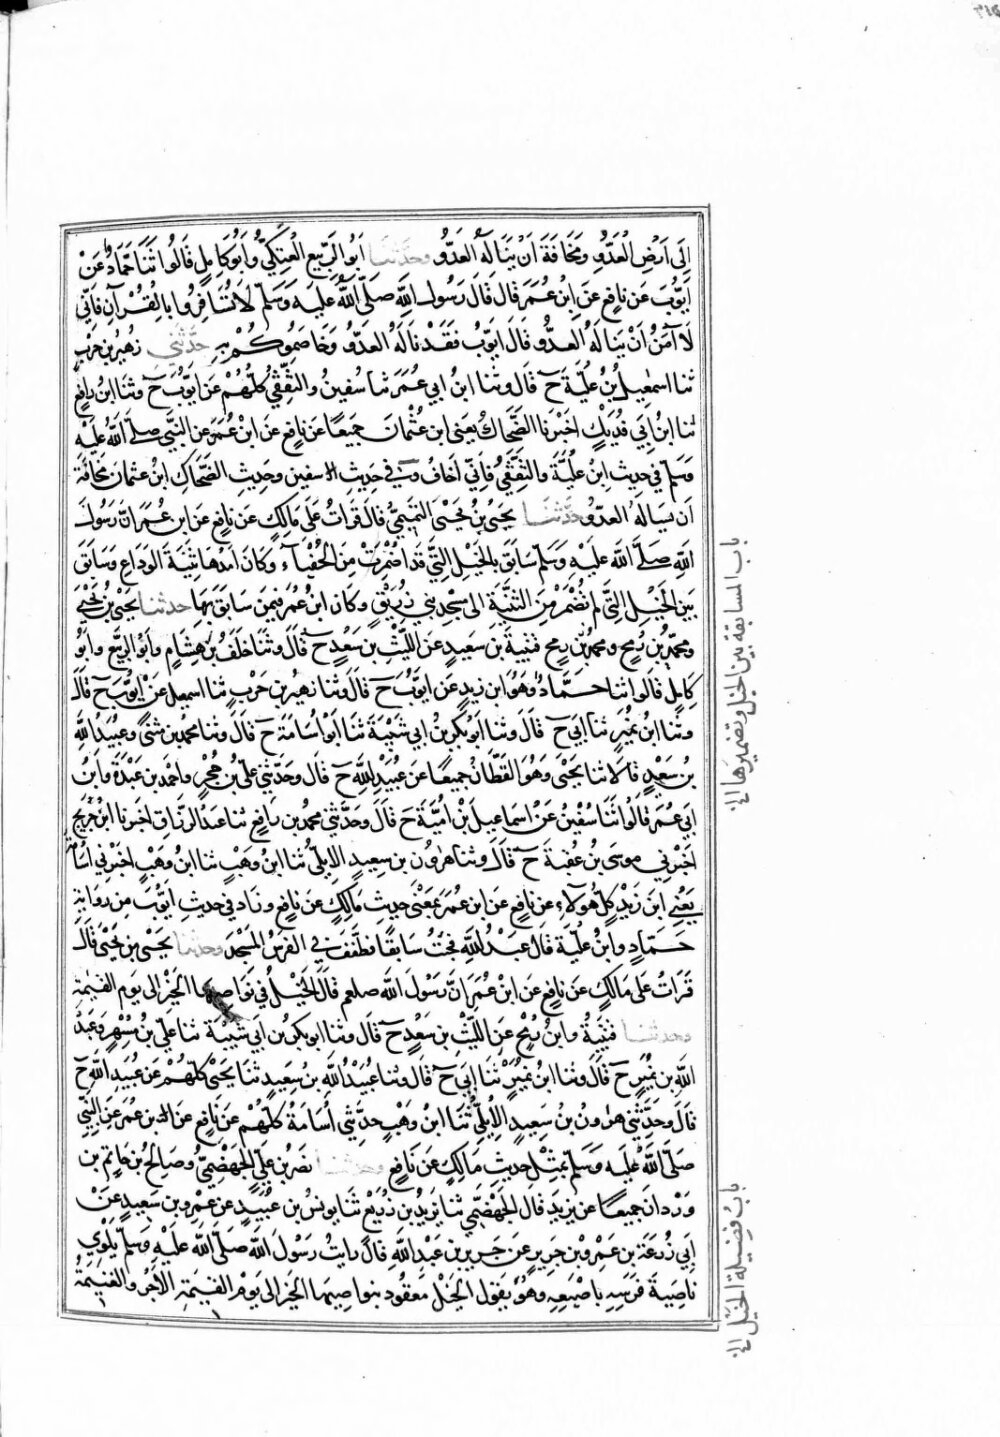 إِلَى اَرْضِ الْعَدُوِّ وَمَخَافَةَ اَنْ يَنَالَهُ الْعَدُوُّ وحَدَّثَنَا اَبُو الرَّبِيعِ الْعَتَكِيُّ وَاَبُو كَامِلٍ قَالُوا ثَنَا حَمَّادٌ عَنْ
اَيُّوبَ عَنْ نَافِعٍ عَنِ ابْنِ عُمَرَ قَالَ قَالَ رَسُولُ اللَّهِ صَلَّى اللَّهُ عَلَيْهِ وَسَلَّمَ لَا تُسَافِرُوا بِالْقُرْآنِ فَاِنِّي
لَا آمَنُ اَنْ يَنَالَهُ الْعَدُوُّ قَالَ اَيُّوبُ فَقَدْ نَالَهُ الْعَدُوُّ وَخَاصَمُوكُمْ بِهِ حَدَّثَنِي زُهَيْرُ بْنُ حَرْبٍ
ثنا اسمعيل بْنُ عُلَيَّةَ ح قَالَ وثنا ابْنُ ابي عُمَرَ ثنا سُفينُ والثَّقَفِيُّ كُلُّهُمْ عَنْ اَيُّوبَ ح وثنا ابْنُ رَافِعٍ
ثنا ابْنُ اَبِي فُدَيْكٍ اَخْبَرَنَا الضَّحَّاكُ يعنى ابن عُثْمَانَ جَمِيعًا عَنْ نَافِعٍ عَنِ ابْنِ عُمَرَ عَنِ النَّبِيِّ صلى اللَّهُ عَلَيْهِ
وَسَلَّمَ في حديث ابْنِ عُلَيَّةَ والثَّقَفِيِّ فَاِنِّي اَخَافُ وفي حَدِيثِ سفين وحَدِيثِ الضَّحَّاكِ ابْنِ عثمان مَخَافَةَ
اَن يناله العدوُّ حَدَّثَنَا يَحْيَى بْنُ يَحْيَى التَّمِيمِيُّ قَالَ قَرَاْتُ عَلَى مَالِكٍ عَنْ نَافِعٍ عَنِ ابن عُمَرَ اَنَّ رَسُولَ
اللَّهِ صَلَّى اللَّه عَلَيْهِ وَسَلَّمَ سَابَقَ بِالْخَيْلِ الَّتِي قَدْ اُضْمِرَتْ مِنَ الْحَفْيَاءِ وَكَانَ اَمَدُهَا ثَنِيَّةَ الْوَدَاعِ وَسَابَقَ
بَيْنَ الْخَيْلِ الَّتِي لَمْ تُضْمَرْ مِنَ الثَّنِيَّةِ الى مسجد بني زُرَيْقٍ وكان ابْنُ عُمَرَ فِيمَنْ سَابَقَ بِهَا حدثنا يَحْيَى بْنُ يَحْيَى
ومحمّد بن رُمْحٍ ومحمد بْنُ رمحٍ قتيبة بن سعيد عَنِ اللَّيْثِ بن سَعْدٍ ح قَالَ وَثنَا خَلَفُ بْنُ هِشَامٍ وَاَبُو الرَّبِيعِ وَاَبُو
كامِلٍ قالوا ثنا حَمَّادٌ وَهُوَ ابن زيدٍ عن اَيُّوبَ ح قَالَ وثنا زهير بن حَرْبٍ ثنا اسمعيل عَنْ اَيُّوبَ ح قَالَ
وثنا ابْنُ نُمَيْرٍ ثنا اَبِي ح قَالَ وثنا اَبُو بكر بنُ ابي شَيْبَةَ ثَنَا اَبُو اُسَامَةَ ح قَالَ وثنا محمد بن مثنى وعُبَيْدُ اللَّهِ
بن سَعِيدٍ قَالَا ثنا يَحْيَى وَهُوَ القَطَّانُ جَمِيعًا عَنْ عُبَيْدِ اللَّهِ ح قال وحَدَّثَنِي عَلِيُّ بْنُ حُجْرٍ واحمد بن عَبْدَةَ وَابْنُ
ابي عمر قَالُوا ثَنَا سُفْيٰنُ عَنْ اسماعيل بْنِ اُمَيَّةَ ح قَالَ وحَدَّثَنِي محمد بن رافع ثنا عَبْدُ الرزاق اخبرنا ابْنُ جُرَيْجٍ
اخبرني موسَى بْنُ عُقْبَةَ ح قَالَ وثنا هرون بن سعيد الاَيْلِيُّ ثنا ابن وهبٍ ثنا ابن وهب اخبرني اُسَامة
يَعْنِى ابن زَيْدٍ كُلُّ هٰؤُلَاءِ عَنْ نَافِعٍ عَنِ ابن عمر بِمَعْنَى حديثِ مَالِكٍ عَنْ نَافِعٍ وزاد في حديثِ اَيُّوبَ مِن رواية
حَمَّادٍ وابْنِ عُلَيَّةَ قَالَ عَبْدُ اللَّهِ فجئتُ سَابِقًا فطَفَّفَ بي الفَرَسُ المَسْجِدَ وحَدَّثَنَا يحيى بن يَحْيَى قَالَ
قَرَاْتُ على مَالِكٍ عَنْ نَافِعٍ عَنِ ابْنِ عُمَرَ اَنَّ رَسُولَ اللَّه صلعم قَالَ الْخَيْلُ فِي نَوَاصِيهَا الخيرُ الى يَومِ القيٰمةِ
وحدثنا قتيبة وابن رُمْحٍ عَنِ اللَّيْثِ بن سَعْدٍ ح قَالَ وثنا ابو بكر بن ابي شَيْبَةَ ثنا عَلِيُّ بْنُ مُسْهِرٍ وعَبْدُ
اللَّهِ بن نُمَيْرٍ ح قَالَ وثنا ابْنُ نُمَيْرٍ ثَنَا اَبِي ح قَالَ وثنا عُبَيْدُ اللَّهِ بن سَعِيدٍ ثَنَا يَحْيَى كُلُّهُمْ عَنْ عُبَيْدِ اللَّهِ ح
قَالَ وَحَدَّثَنِي هرون بْنُ سَعِيدٍ الاَيْلِيُّ ثَنَا ابْنُ وَهْبٍ حدثَنِي اُسَامَةُ كُلُّهُمْ عَنْ نَافِعٍ عَنِ ابن عمر عَنِ النَّبِيِّ
صَلَّى اللَّهُ عَلَيْهِ وَسَلَّمَ بِمِثْلِ حديثِ مَالِكٍ عَنْ نَافِعٍ وحدثنا نَصْرُ بن عَلِيٍّ الجَهْضَمِيُّ وصَالِحُ بن حَاتِمِ بن
وَرْدَان جَمِيعًا عن يزيدَ قال الجَهْضَمِيُّ ثنا يَزِيدُ بن زُرَيْعٍ ثَنَا يونس بن عُبَيْدٍ عن عَمْرِو بن سَعِيدٍ عَنْ
اَبِي زُرْعَةَ بن عَمْرِو بن جَرِيرٍ عن جَرِيرِ بن عَبْدِ اللَّهِ قَالَ رَايتُ رَسُولَ اللَّه صَلَّى اللَّه عَلَيْهِ وسَلَّمَ يَلْوِي
ناصِيَةَ فَرَسِهِ باِصْبَعِهِ وهُوَ يَقول الخَيْلُ مَعْقُودٌ بنواصِيهَا الخَيْرُ الى يَومِ القيٰمة الاَجْرُ والغَنِيمَةُ
باب المسابقة بين الخيل وتضميرها الخ
باب فضيلة الخيل الخ